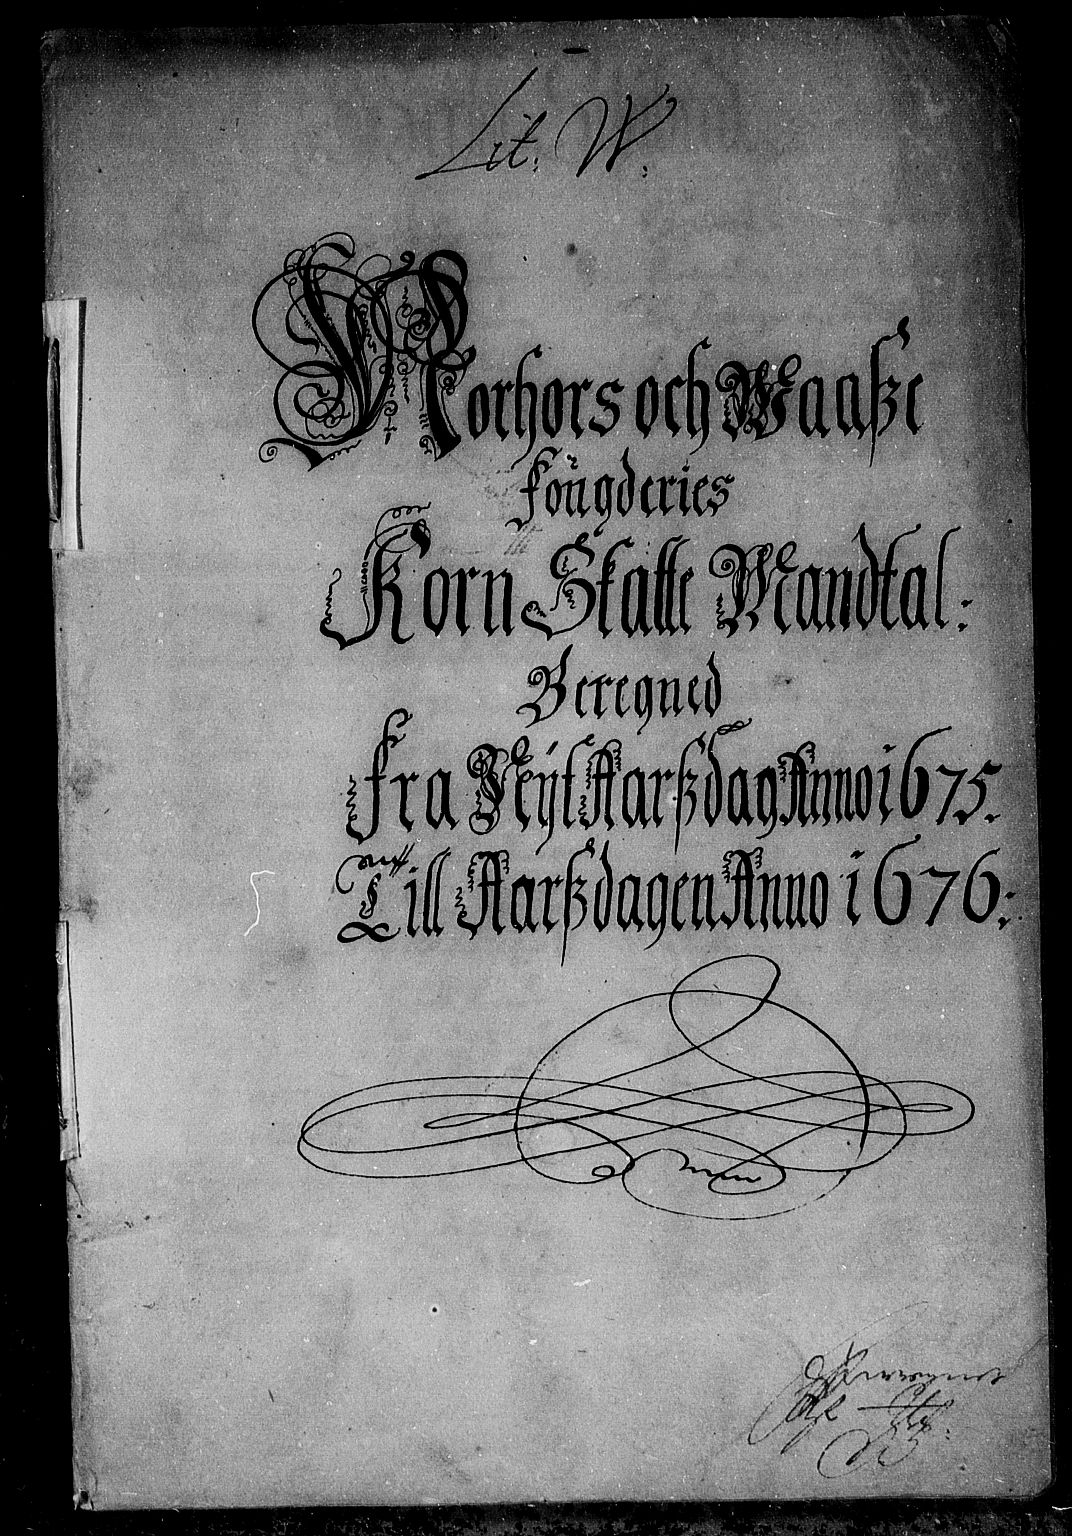 Lit: W:
Norhors och Waasze
föügderies
Korn Skatte Mandtal:
Beregned
Fra Nÿt Aarszdag Anno 1675.
Till Aarszdagen Anno 1676: